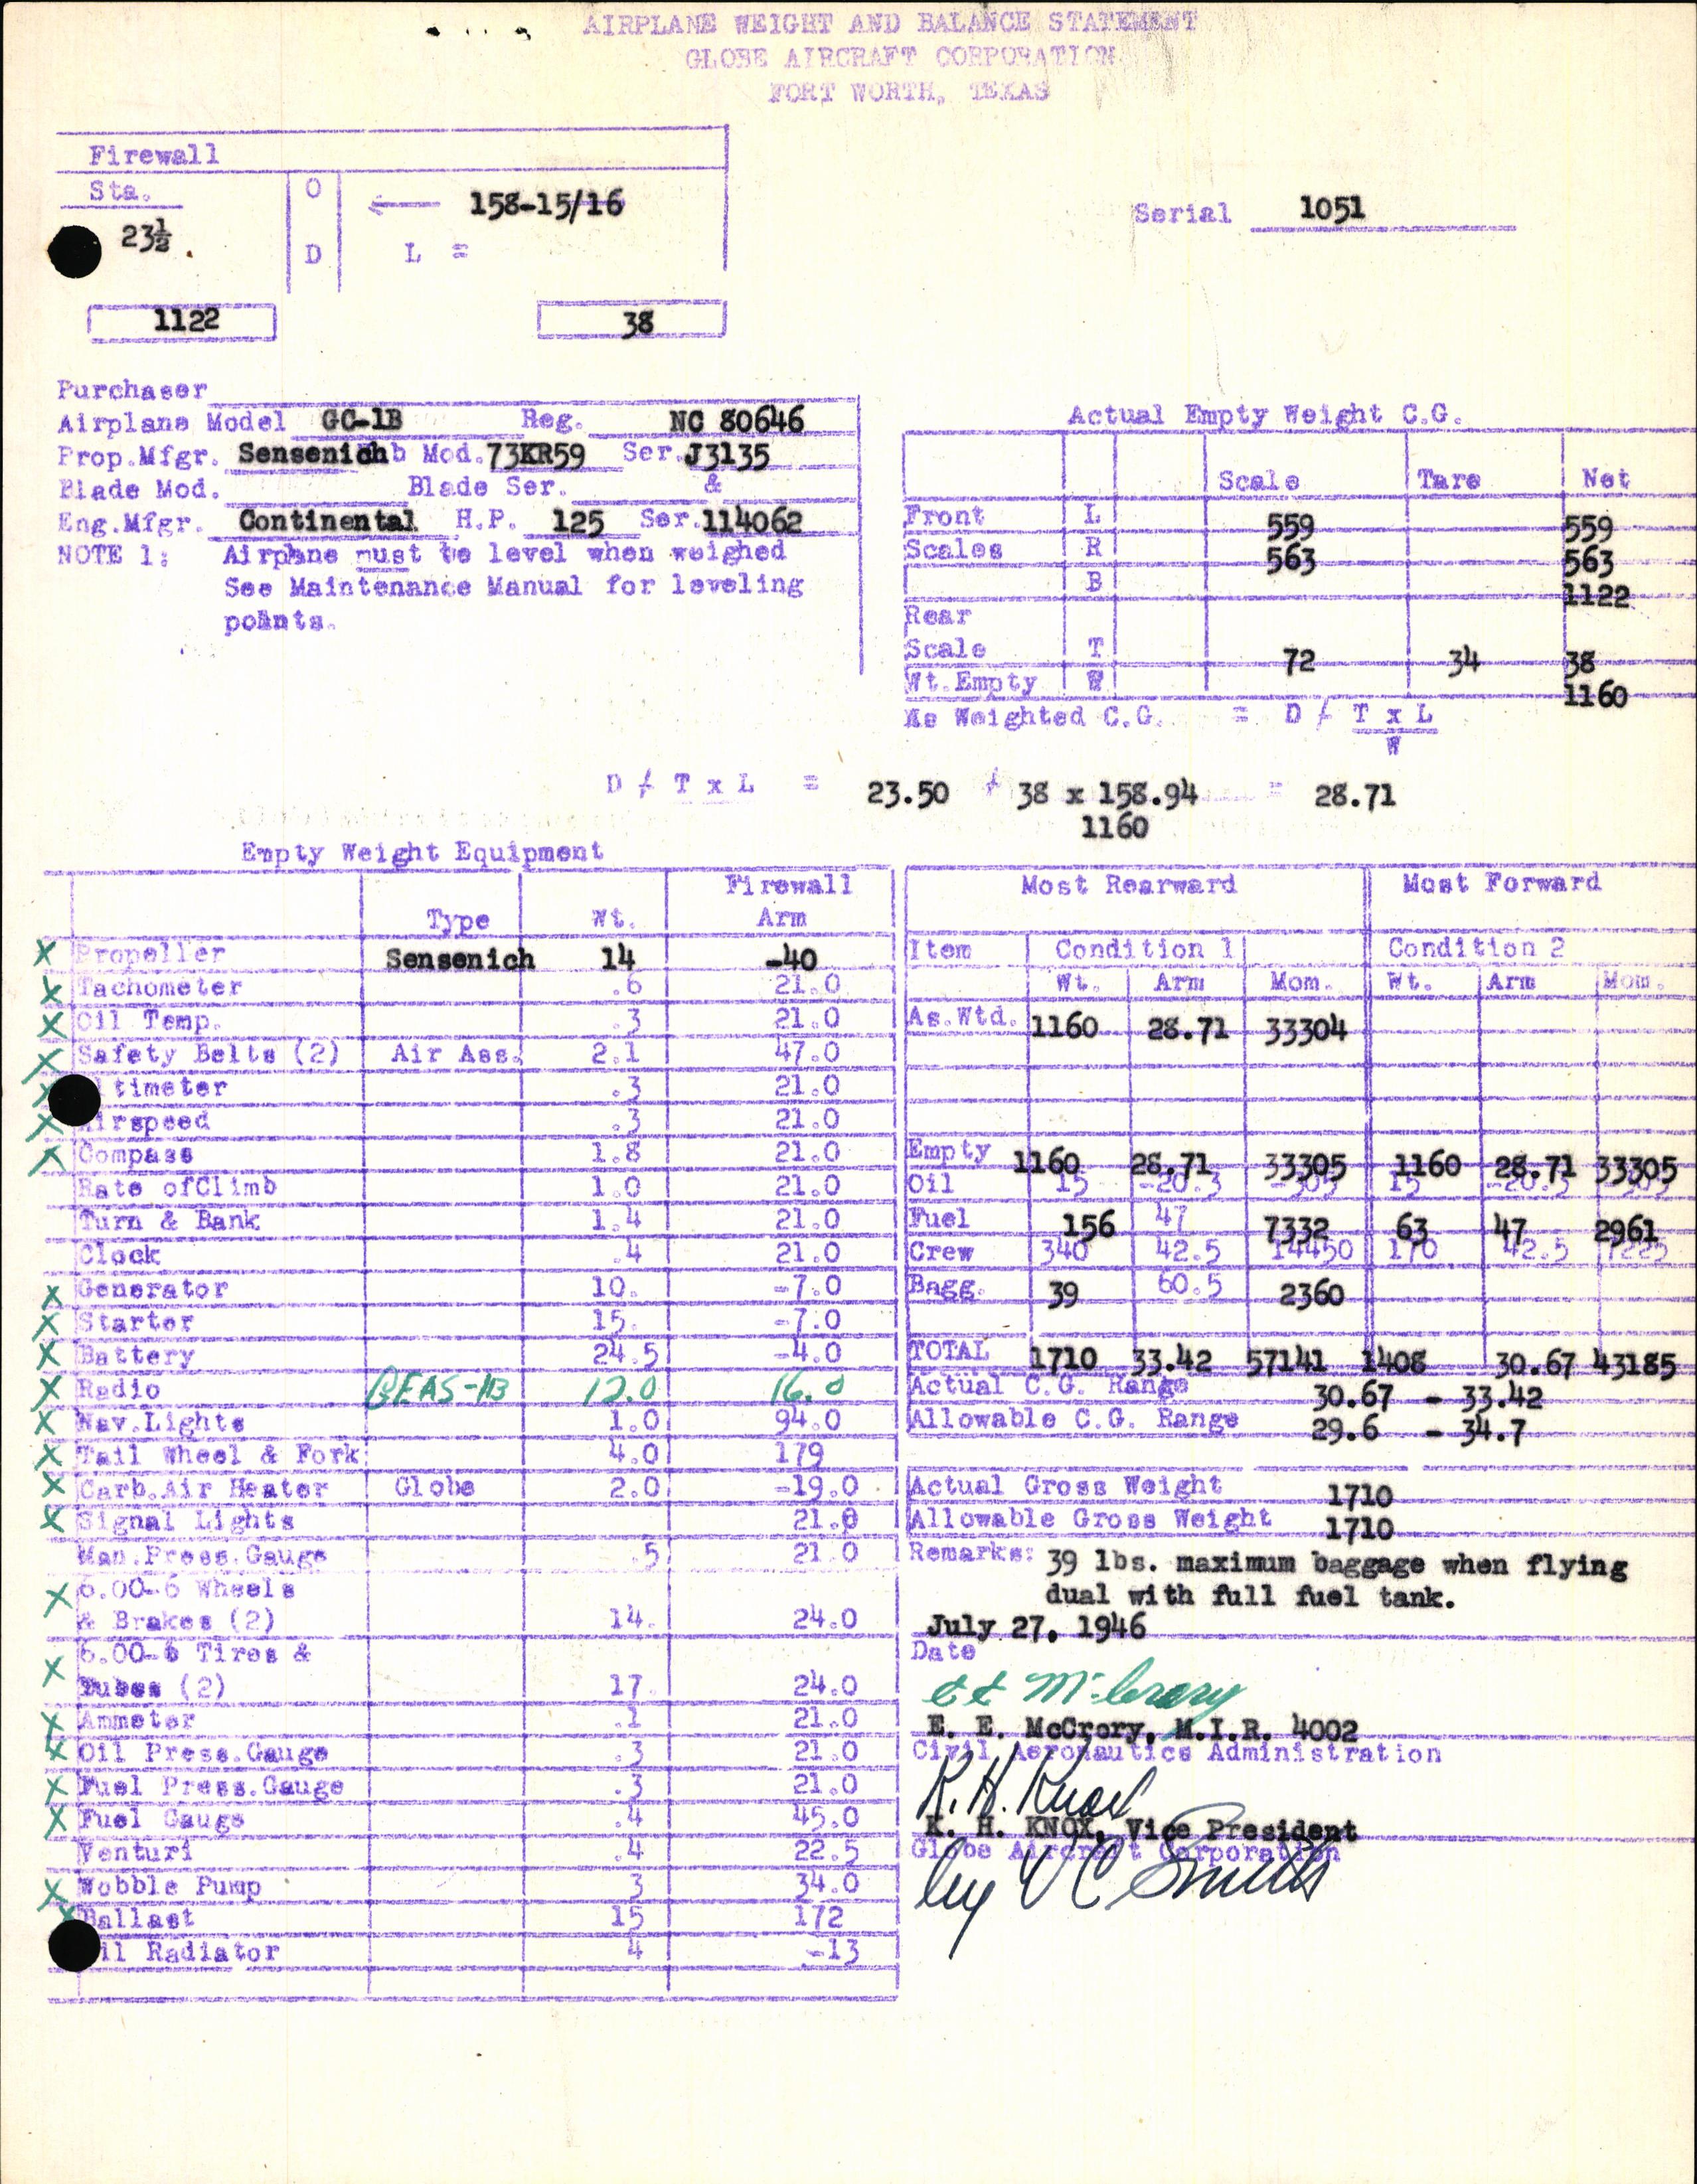 AIRPLANE WEIGHT AND BALANCE STATEMENT
GLOBE AIRCRAFT CORPORATION
FORT WORTH, TEXAS
Firewall
Sta. O ← 158-15/16
23½ D L =
Serial 1051
1122 38
Purchaser
Airplane Model GC-1B Reg. NC 80646
Prop.Mfgr. Sensenich Mod. 73KR59 Ser. J3135
Blade Mod. Blade Ser. &
Eng.Mfgr. Continental H.P. 125 Ser. 114062
NOTE 1: Airplane must be level when weighed
See Maintenance Manual for leveling
points.
Actual Empty Weight C.G.
Scale Tare Net
Front L 559 559
Scales R 563 563
B 1122
Rear
Scale T 72 34 38
Wt.Empty W 1160
As Weighted C.G. = D ≠ T x L
W
D ≠ T x L = 23.50 ≠ 38 x 158.94 = 28.71
1160
Empty Weight Equipment
Type Wt. Firewall Arm
X Propeller Sensenich 14 -40
X Tachometer .6 21.0
X Oil Temp. .3 21.0
X Safety Belts (2) Air Ass. 2.1 47.0
X ltimeter .3 21.0
X Airspeed .3 21.0
X Compass 1.8 21.0
Rate ofClimb 1.0 21.0
Turn & Bank 1.4 21.0
Clock .4 21.0
X Generator 10. -7.0
X Starter 15. -7.0
X Battery 24.5 -4.0
X Radio GEAS-1B 12.0 16.0
X Nav.Lights 1.0 94.0
X Tail Wheel & Fork 4.0 179
X Carb.Air Heater Globe 2.0 -19.0
X Signal Lights 21.0
Man.Press.Gauge .5 21.0
X 6.00-6 Wheels
& Brakes (2) 14. 24.0
X 6.00-6 Tires &
Tubes (2) 17. 24.0
X Ammeter .1 21.0
X Oil Press.Gauge .3 21.0
X Fuel Press.Gauge .3 21.0
X Fuel Gauge .4 45.0
Venturi .4 22.5
X Wobble Pump 3 34.0
X Ballast 15 172
il Radiator 4 -13
Most Rearward Most Forward
Item Condition 1 Condition 2
Wt. Arm Mom. Wt. Arm Mom.
As.Wtd. 1160 28.71 33304
Empty 1160 28.71 33305 1160 28.71 33305
Oil 15 -20.3 -305 15 -20.3 -305
Fuel 156 47 7332 63 47 2961
Crew 340 42.5 14450 170 42.5 7225
Bagg. 39 60.5 2360
TOTAL 1710 33.42 57141 1408 30.67 43185
Actual C.G. Range 30.67 - 33.42
Allowable C.G. Range 29.6 - 34.7
Actual Gross Weight 1710
Allowable Gross Weight 1710
Remarks: 39 lbs. maximum baggage when flying
dual with full fuel tank.
July 27, 1946
Date
E E McCrory
E. E. McCrory, M.I.R. 4002
Civil Aeronautics Administration
K.H. Knox
K. H. KNOX, Vice President
Globe Aircraft Corporation
by V C Smith